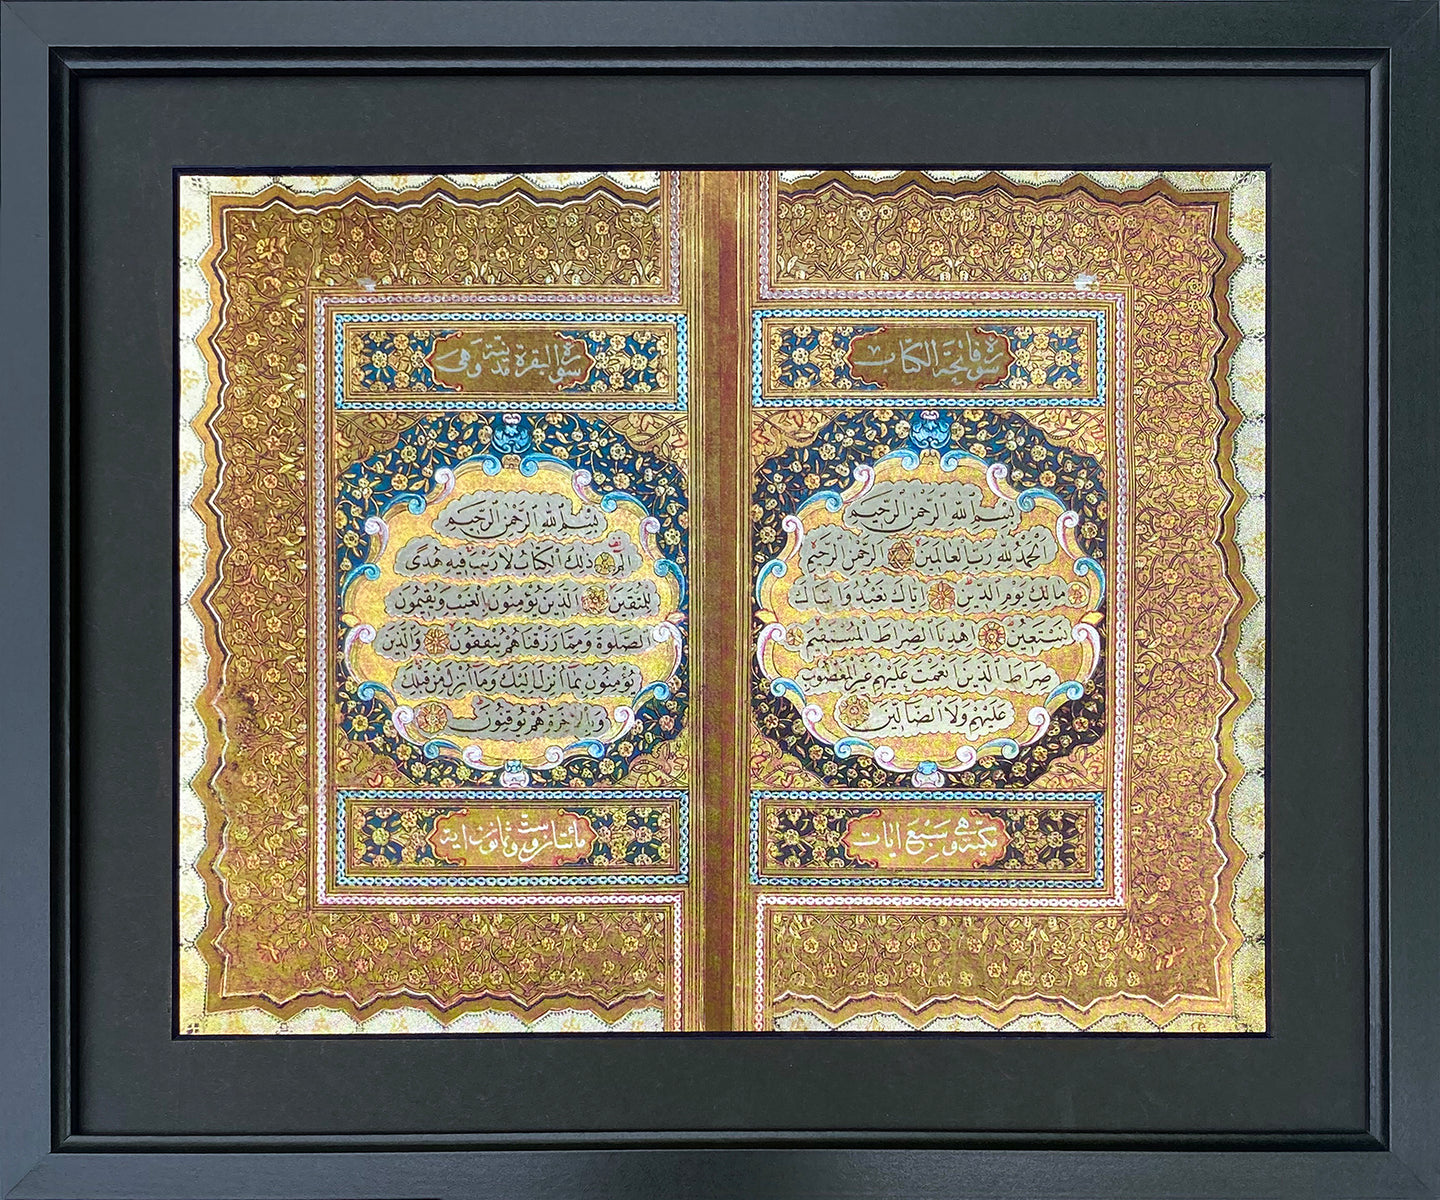 سورة فاتحة الكتاب
بسم الله الرحمن الرحيم
الحمد لله رب العالمين الرحمن الرحيم
مالك يوم الدين اياك نعبد واياك
نستعين اهدنا الصراط المستقيم
صراط الذين انعمت عليهم غير المغضوب
عليهم ولا الضالين
مكية وهي سبع ايات
سورة البقرة مدنية وهي
بسم الله الرحمن الرحيم
الم ذلك الكتاب لا ريب فيه هدى
للمتقين الذين يؤمنون بالغيب ويقيمون
الصلوة ومما رزقناهم ينفقون والذين
يؤمنون بما انزل اليك وما انزل من قبلك
وبالاخرة هم يوقنون
مائتان وست وثمانون اية